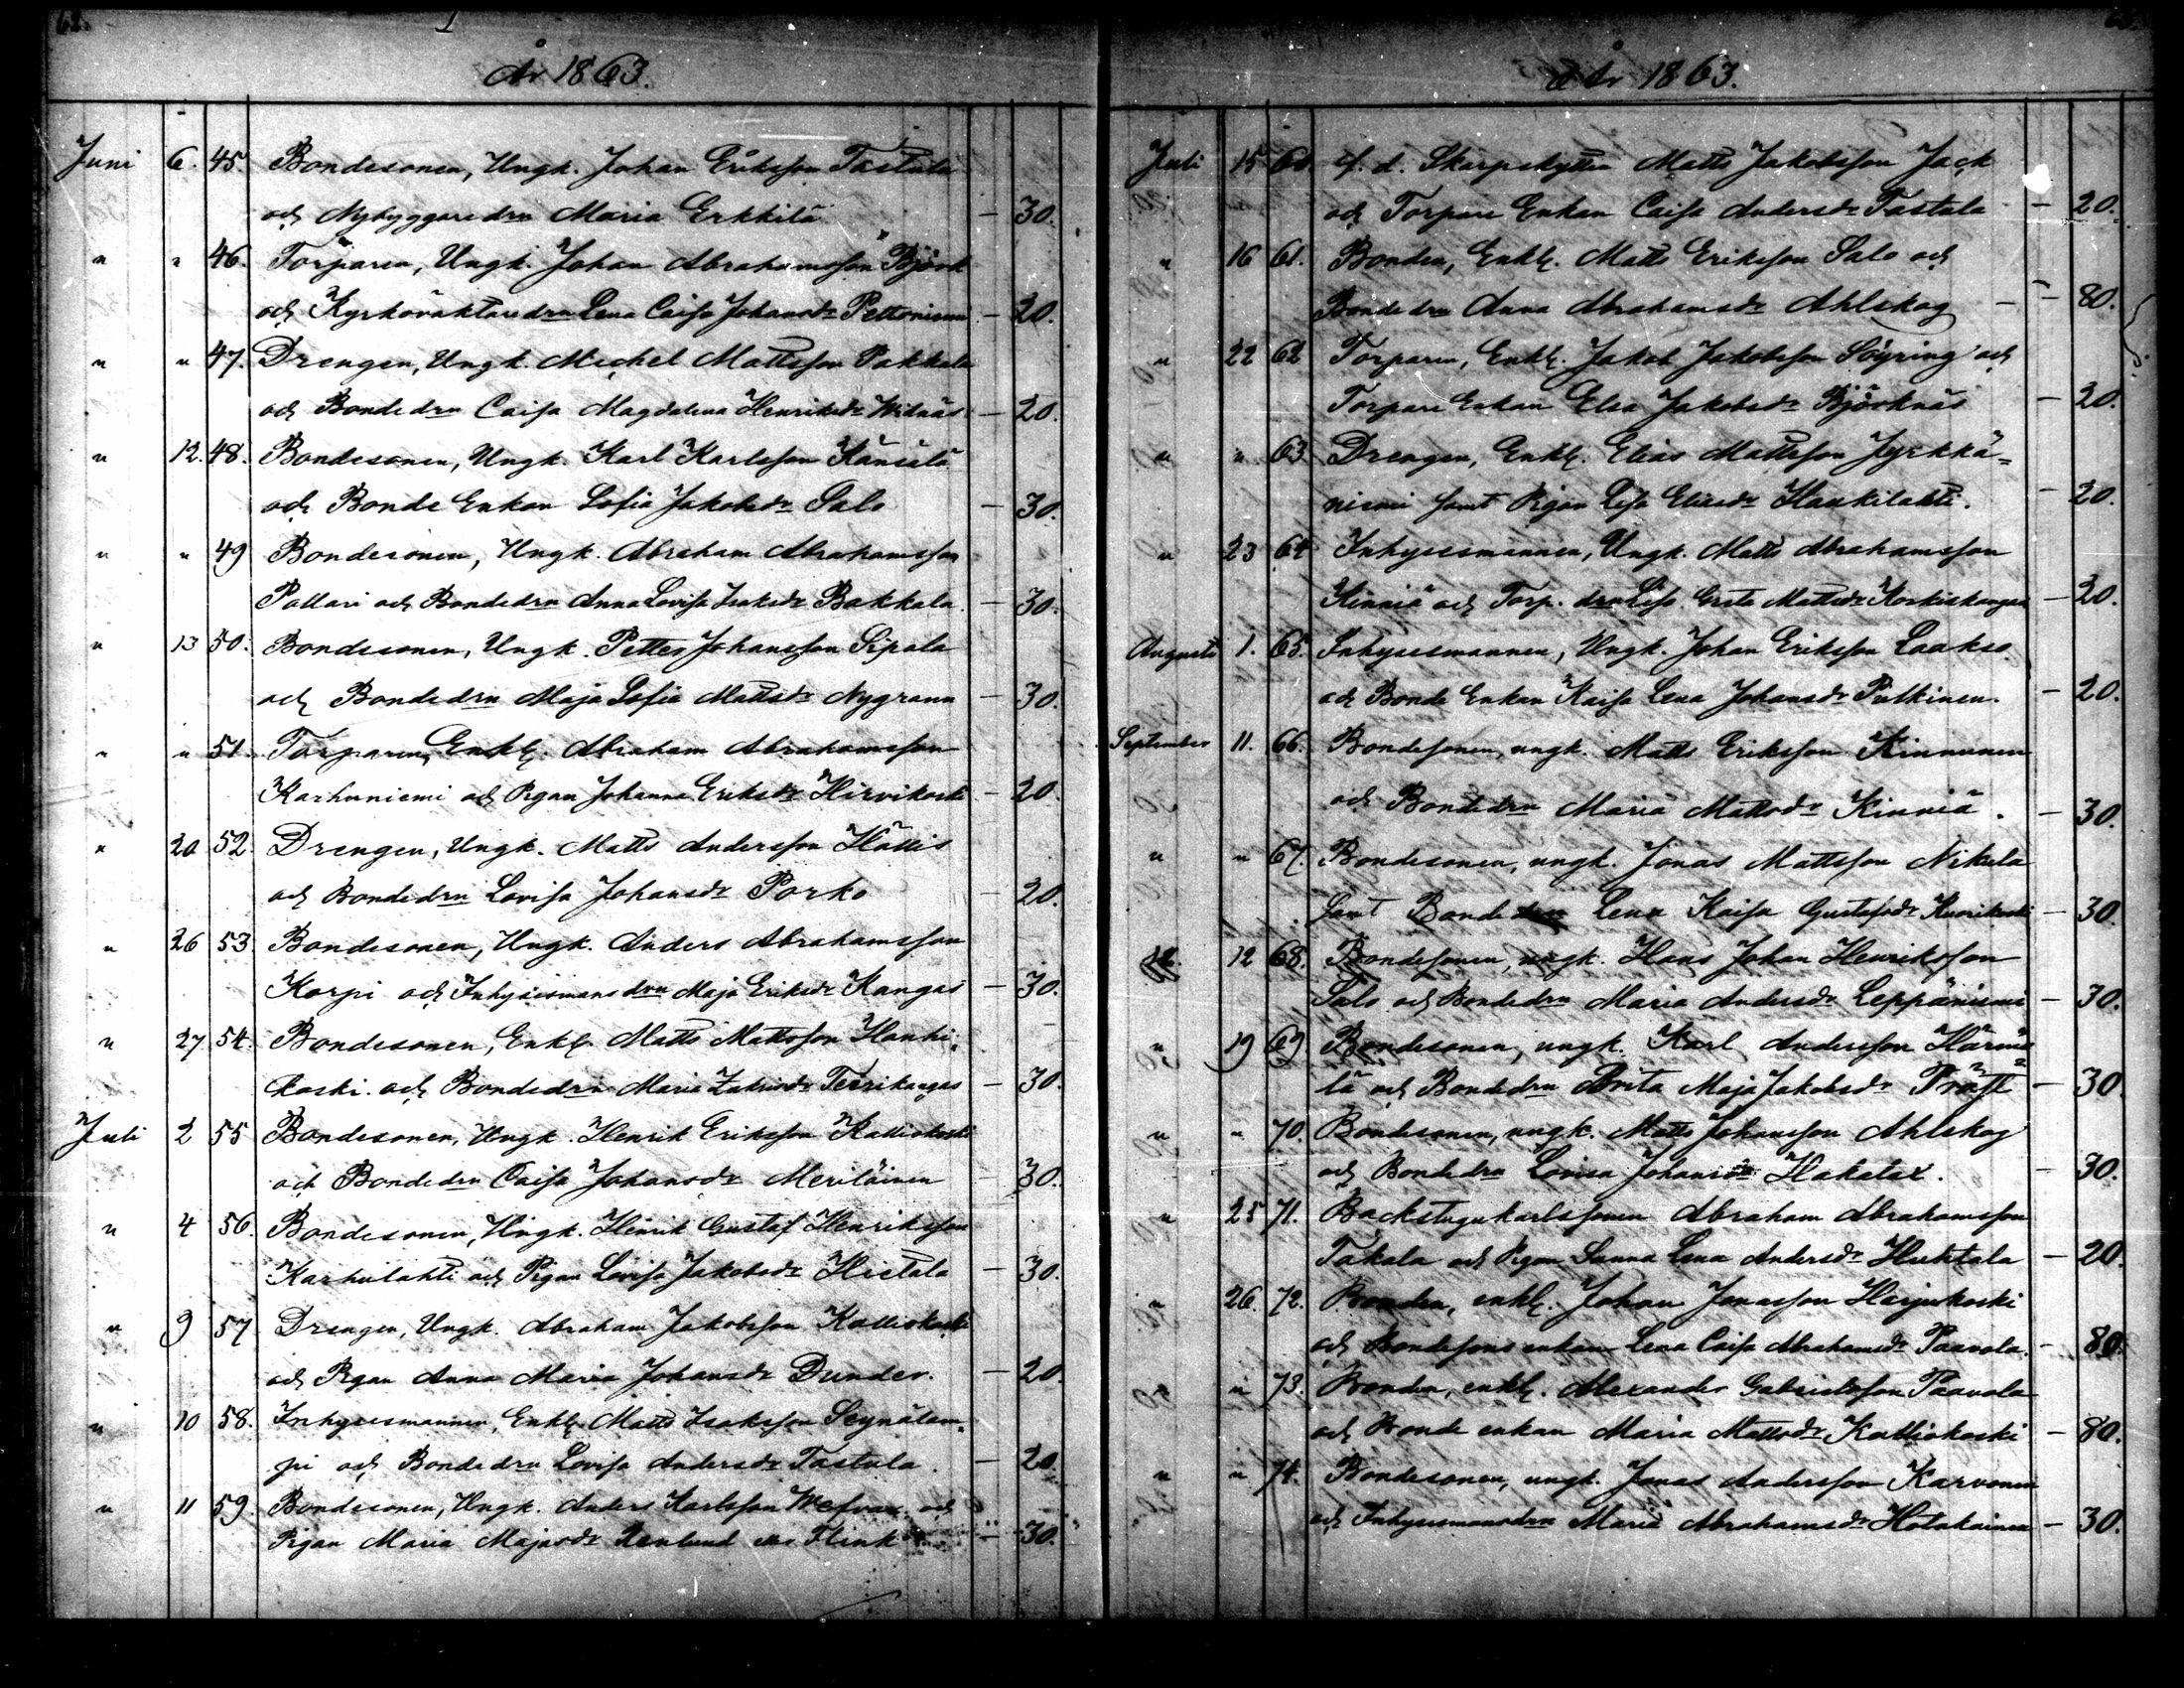 62.
År 1863.
Juni 6. 45. Bondesonen, Ungk. Johan Eriksson Tastula
och Nybyggaredrn Maria Erkkilä — 30.
" " 46. Torparen, Ungk. Johan Abrahamsson Björk
och Kyrkoväktaredrn Lena Caisa Johansdr Pettoniemi — 20.
" " 47. Drengen, Ungk. Michel Mattsson Pakkala
och Bondedrn Caisa Magdalena Henriksdr Widnäs — 20.
" 12. 48. Bondesonen, Ungk. Karl Karlsson Känsälä
och Bonde Enkan Sofia Jakobsdr Salo — 30.
" " 49 Bondesonen, Ungk. Abraham Abrahamsson
Pollari och Bondedrn Anna Lovisa Isaksdr Bakkala — 30.
" 13 50. Bondesonen, Ungk. Petter Johansson Sipola
och Bondedrn Maja Sofia Mattsdr Nygrann — 30.
" " 51. Torparen, Enkl. Abraham Abrahamsson
Karhuniemi och Pigan Johanna Eriksdr Hirvikoski — 20.
" 20 52. Drengen, Ungk. Matts Andersson Hättis
och Bondedrn Lovisa Johansdr Porko — 20.
" 26 53. Bondesonen, Ungk. Anders Abrahamsson
Korpi och Inhysesmansdrn Maja Eriksdr Kangas — 30.
" 27 54. Bondesonen, Enkl. Matts Mattsson Hanhi-
koski och Bondedrn Maria Terrikangas — 30.
Juli 2 55 Bondesonen, Ungk. Henrik Eriksson Kalliokoski
och Bondedrn Caisa Johansdr Meriläinen — 30.
" 4 56. Bondesonen, Ungk. Henrik Gustaf Henriksson
Karhulahti och Pigan Lovisa Jakobsdr Hietala — 30.
" 9 57 Drengen, Ungk. Abraham Jakobsson Kalliokoski
och Pigan Anna Maria Johansdr Dunder. — 20.
" 10 58. Inhysesmannen, Enkl. Matts Isaksson Seynälam-
pi och Bondedrn Lovisa Andersdr Tastula. — 20.
" 11 59. Bondesonen, Ungk. Anders Karlsson Wefvar och
Pigan Maria Majasdr Renlund Flink — 30.
År 1863.
Juli 15 60. f. d. Skarpskytten Matts Jakobsson Jack
och Torpare Enkan Caisa Andersdr Tastula — 20.
" 16 61. Bonden, Enkl. Matts Eriksson Salo och
Bondedrn Anna Abrahamsdr Ahlskog — 80.
" 22 62 Torparen, Enkl. Jakob Jakobsson Söyring och
Torpare Enkan Elsa Jakobsdr Björknäs — 20.
" " 63 Drengen, Enkl. Elias Mattsson Jyrkkä-
niemi samt Pigan Lisa Eliasdr Haukilahti. — 20.
" 23 64 Inhysesmannen, Ungk. Matts Abrahamsson
Kinniä och Torp. drn Lisa Greta Mattsdr Koskiskangas — 20.
Augusti 1. 65. Inhysesmannen, Ungk. Johan Eriksson Laakso
och Bonde Enkan Kaisa Lena Johansdr Pulkinen. — 20.
September 11. 66. Bondesonen, ungk. Matts Eriksson Kinnunen
och Bondedrn Maria Mattsdr Kinniä. — 30.
" " 67. Bondesonen, ungk. Jonas Mattsson Nikula
samt Bondedrn Lena Kaisa Gustafsdr Kuorikoski — 30.
12 68. Bondesonen, ungk. Hans Johan Henriksson
Salo och Bondedrn Maria Andersdr Leppäniemi — 30.
" 19 69 Bondesonen, ungk. Karl Andersson Härmä-
lä och Bondedrn Brita Maja Jakobsdr Träst — 30
" " 70. Bondesonen, ungk. Matts Johansson Ahlskog
och Bondedrn Lovisa Johansdr Hakalax. — 30.
" 25 71. Backstugukarlssonen Abraham Abrahamsson
Takala och Pigan Sanna Lena Andersdr Huhtala — 20.
" 26. 72. Bonden, enkl. Johan Jonasson Harjukoski
och Bondesons enkan Lena Caisa Abrahamsdr Paavola. — 80.
" 73. Bonden, enkl. Alexander Gabrielsson Paavola
och Bonde enkan Maria Mattsdr Kalliokoski — 80.
" " 74. Bondesonen, ungk. Jonas Andersson Karvonen
och Inhysesmansdrn Maria Abrahamsdr Hotakainen — 30.